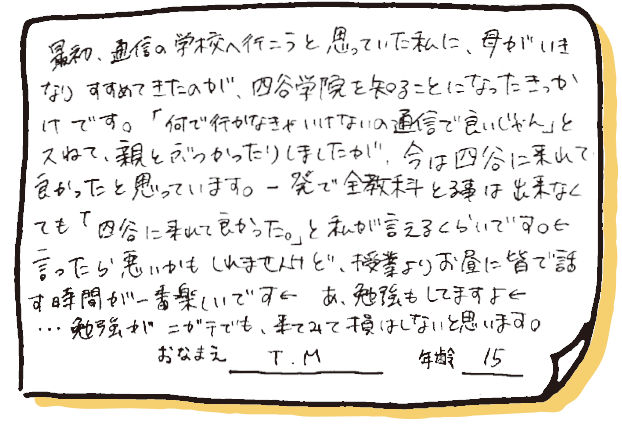 最初、通信の学校へ行こうと思っていた私に、母がいき
なりすすめてきたのが、四谷学院を知ることになったきっか
けです。「何で行かなきゃいけないの通信で良いじゃん」と
スねて、親とぶつかったりしましたが、今は四谷に来れて
良かったと思っています。一発で全教科とる事は出来なく
ても「四谷に来れて良かった。」と私が言えるくらいです。←
言ったら悪いかもしれませんけど、授業よりお昼に皆で話
す時間が一番楽しいです← あ、勉強もしてますよ←
…勉強がニガテでも、来てみて損はしないと思います。
おなまえ T.M 年齢 15